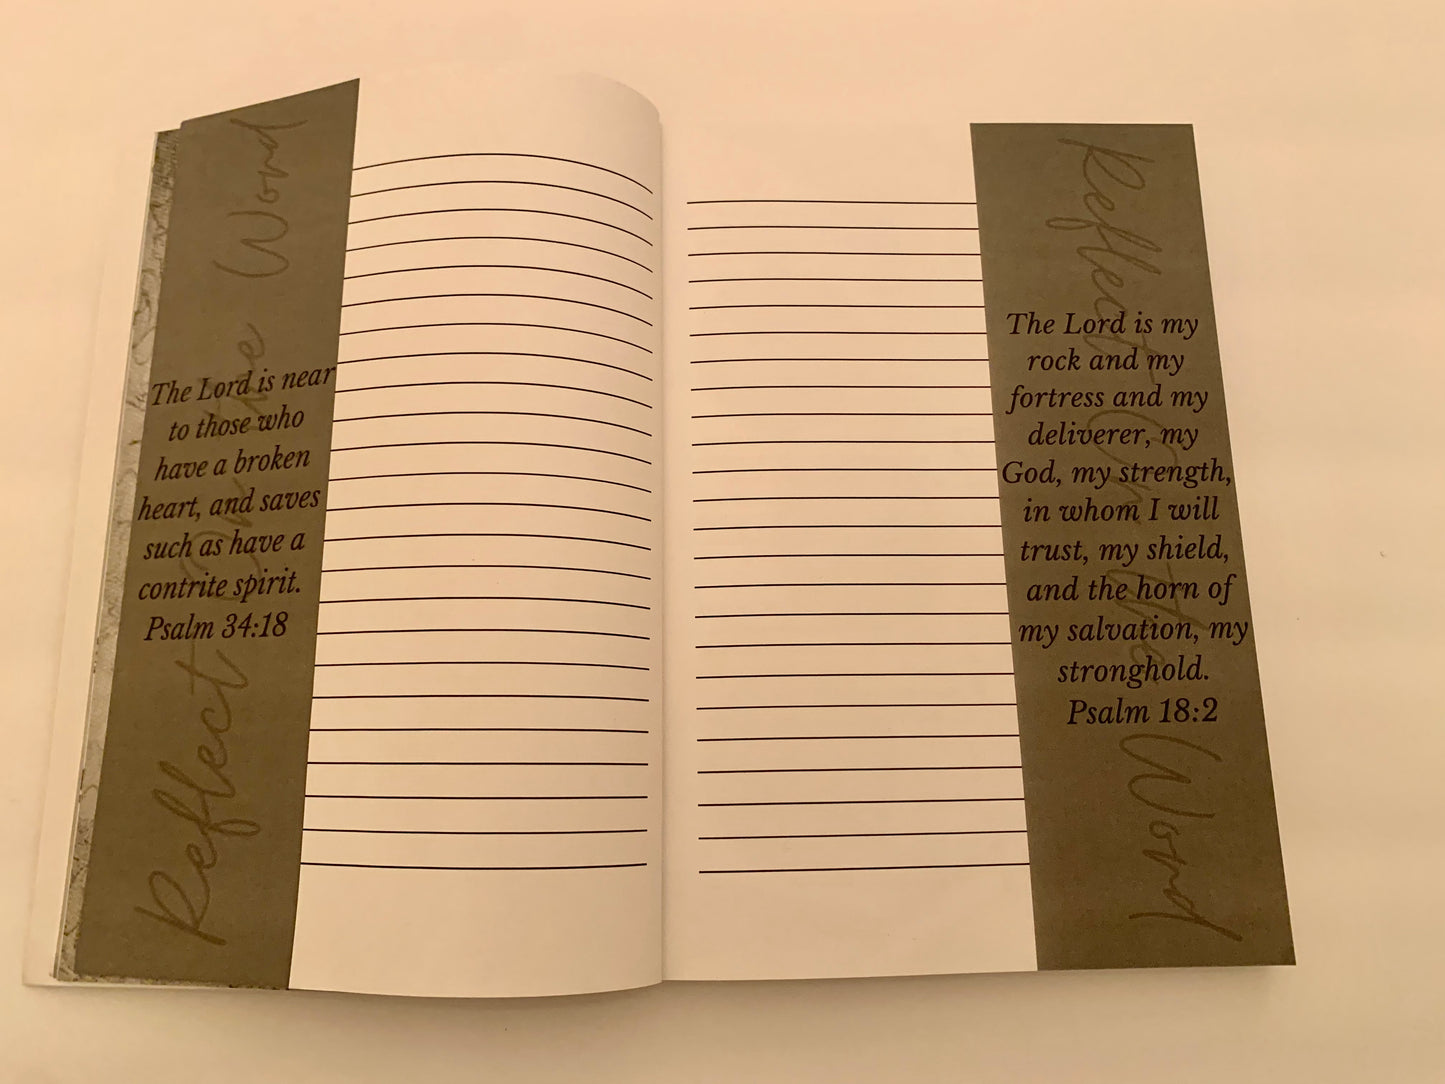 Reflect On the Word
The Lord is near
to those who
have a broken
heart, and saves
such as have a
contrite spirit.
Psalm 34:18
Reflect On the Word
The Lord is my
rock and my
fortress and my
deliverer, my
God, my strength,
in whom I will
trust, my shield,
and the horn of
my salvation, my
stronghold.
Psalm 18:2